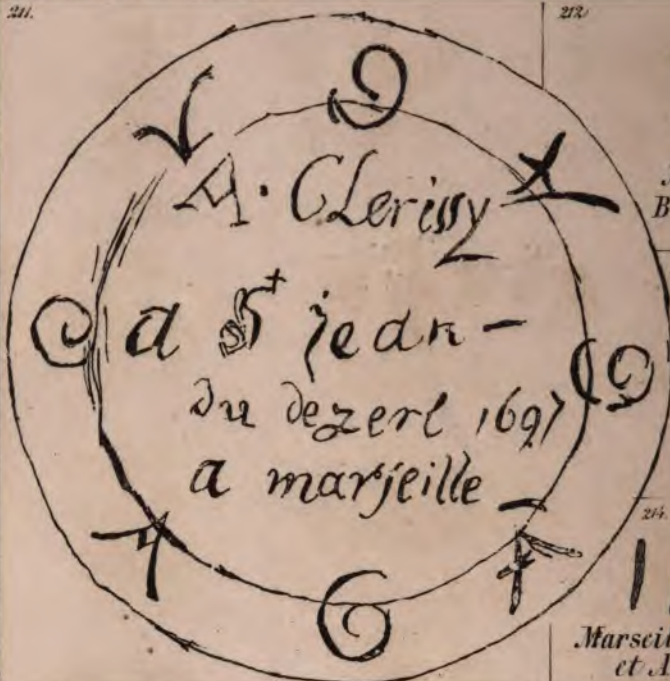 211.
212.
A. CLerissy
a St jean -
du dezert 1697
a marseille
B
214.
Marseil
et A